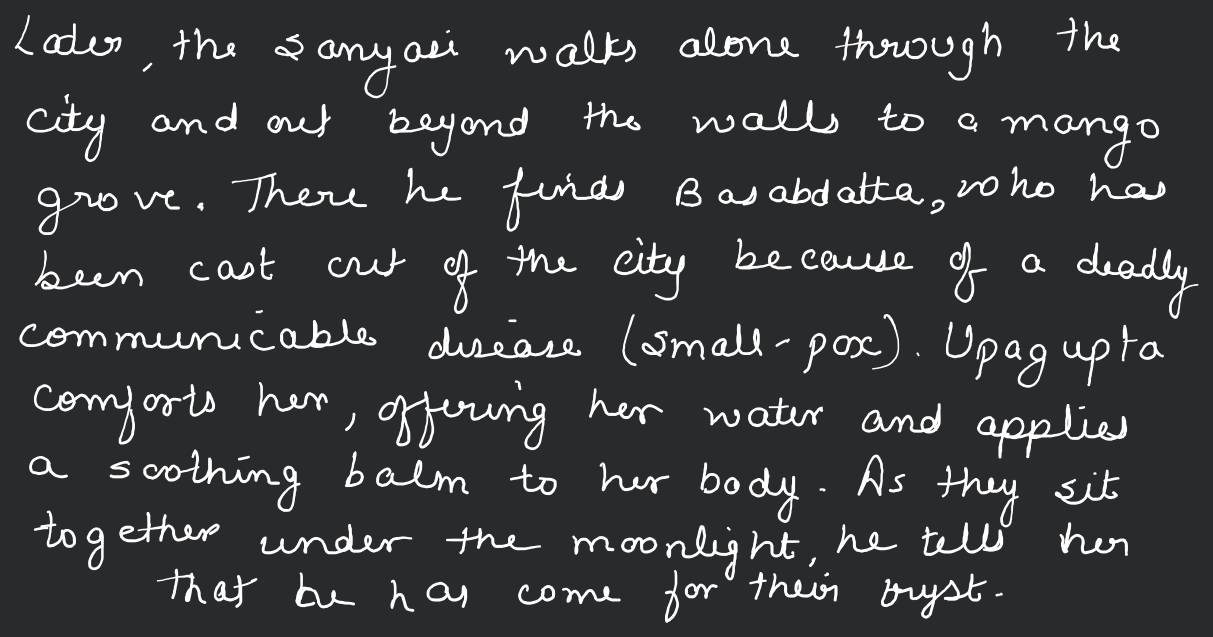 Later, the sanyasi walks alone through the
city and out beyond the walls to a mango
grove. There he finds Basabdatta, who has
been cast out of the city because of a deadly
communicable disease (small-pox). Upagupta
comforts her, offering her water and applies
a soothing balm to her body. As they sit
together under the moonlight, he tells her
that he has come for their tryst.